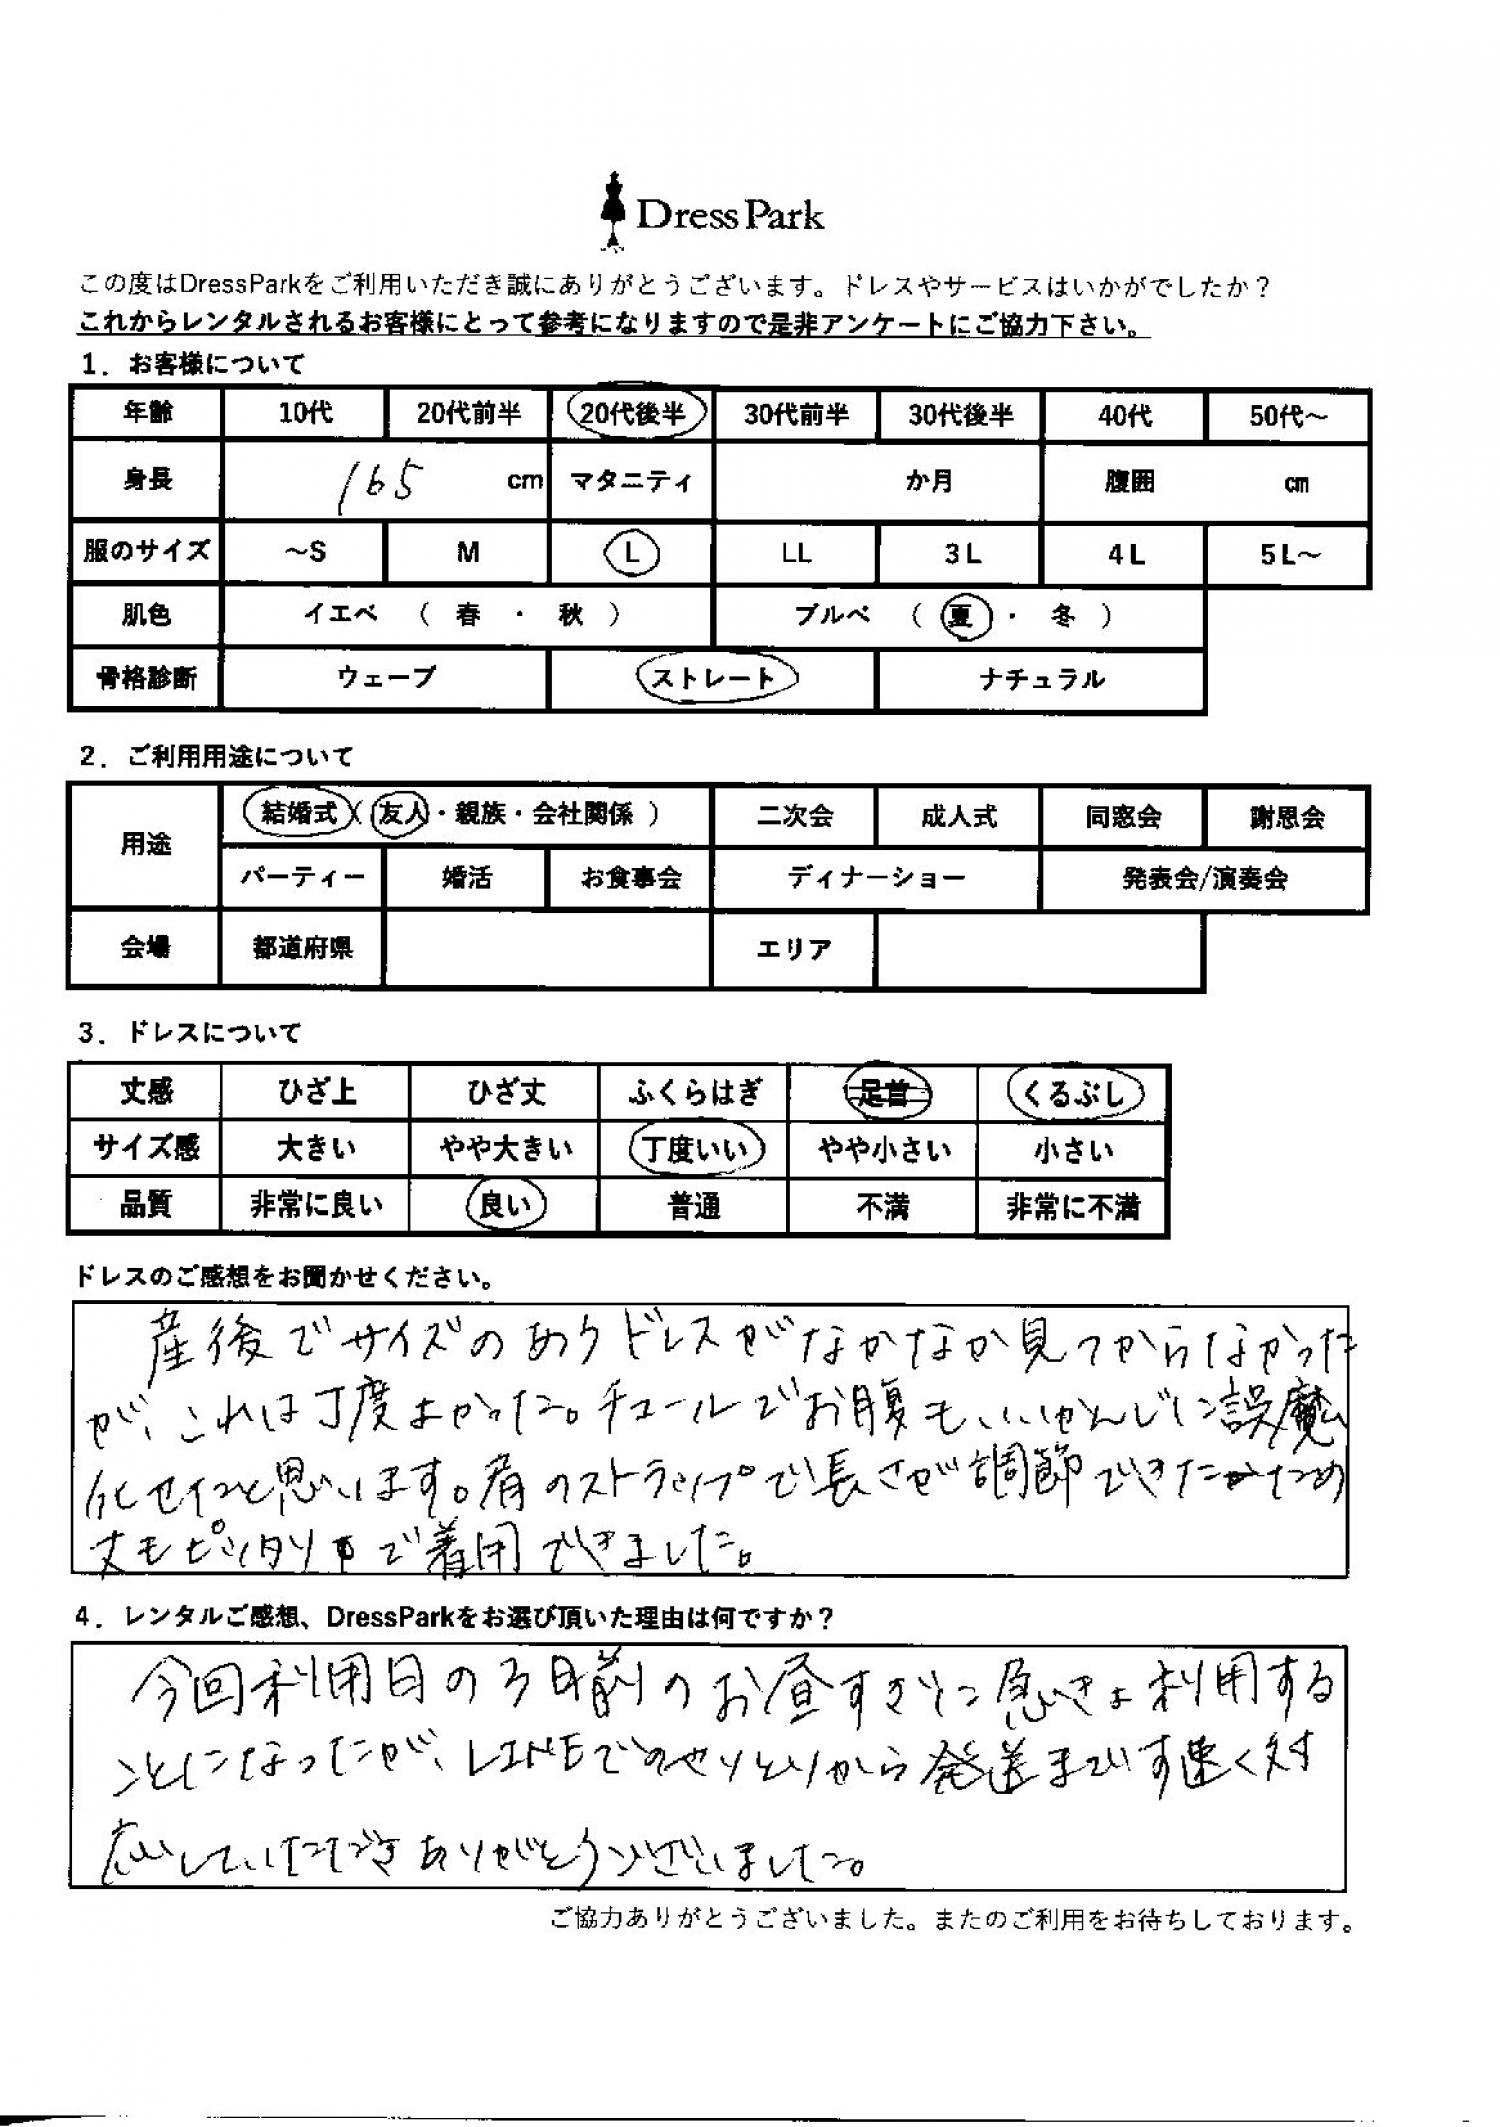 Dress Park
この度はDressParkをご利用いただき誠にありがとうございます。ドレスやサービスはいかがでしたか？
これからレンタルされるお客様にとって参考になりますので是非アンケートにご協力下さい。
1．お客様について
年齢 10代 20代前半 20代後半 30代前半 30代後半 40代 50代～
身長 165 cm マタニティ か月 腹囲 cm
服のサイズ ～S M L LL 3L 4L 5L～
肌色 イエベ （ 春 ・ 秋 ） ブルベ （ 夏 ・ 冬 ）
骨格診断 ウェーブ ストレート ナチュラル
2．ご利用用途について
用途 結婚式（友人・親族・会社関係 ） 二次会 成人式 同窓会 謝恩会
パーティー 婚活 お食事会 ディナーショー 発表会/演奏会
会場 都道府県 エリア
3．ドレスについて
丈感 ひざ上 ひざ丈 ふくらはぎ 足首 くるぶし
サイズ感 大きい やや大きい 丁度いい やや小さい 小さい
品質 非常に良い 良い 普通 不満 非常に不満
ドレスのご感想をお聞かせください。
産後でサイズのあうドレスがなかなか見つからなかった
が、これは丁度よかった。チュールでお腹もいいかんじに誤魔
化せたと思います。肩のストラップで長さが調節できたため
丈もピッタリで着用できました。
4．レンタルご感想、DressParkをお選び頂いた理由は何ですか？
今回利用日の3日前のお昼すぎに急きょ利用する
ことになったが、LINEでのやりとりから発送まです速く対
応していただきありがとうございました。
ご協力ありがとうございました。またのご利用をお待ちしております。